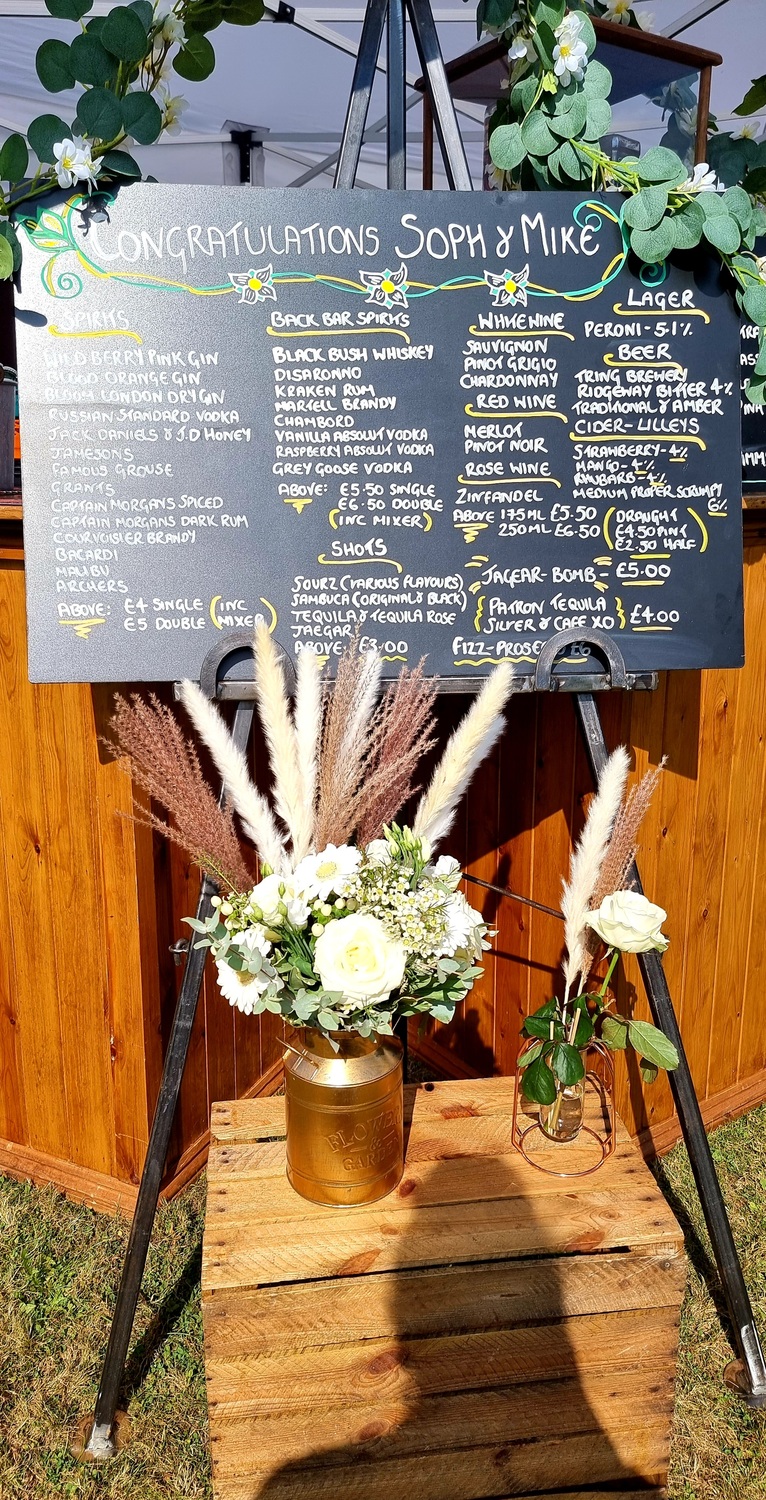 CONGRATULATIONS SOPH & MIKE
SPIRITS
WILD BERRY PINK GIN
BLOOD ORANGE GIN
BLOOM LONDON DRY GIN
RUSSIAN STANDARD VODKA
JACK DANIELS & J.D HONEY
JAMESONS
FAMOUS GROUSE
GRANTS
CAPTAIN MORGANS SPICED
CAPTAIN MORGANS DARK RUM
COURVOISIER BRANDY
BACARDI
MALIBU
ARCHERS
ABOVE: £4 SINGLE (INC
£5 DOUBLE MIXER)
BACK BAR SPIRITS
BLACK BUSH WHISKEY
DISARONNO
KRAKEN RUM
MARTELL BRANDY
CHAMBORD
VANILLA ABSOLUT VODKA
RASPBERRY ABSOLUT VODKA
GREY GOOSE VODKA
ABOVE: £5.50 SINGLE
£6.50 DOUBLE
(INC MIXER)
SHOTS
SOURZ (VARIOUS FLAVOURS)
SAMBUCA (ORIGINAL & BLACK)
TEQUILA & TEQUILA ROSE
JAEGAR
ABOVE £3.00
WHITE WINE
SAUVIGNON
PINOT GRIGIO
CHARDONNAY
RED WINE
MERLOT
PINOT NOIR
ROSE WINE
ZINFANDEL
ABOVE 175ML £5.50
250ML £6.50
LAGER
PERONI - 5.1%
BEER
TRING BREWERY
RIDGEWAY BITTER 4%
TRADITIONAL & AMBER
CIDER - LILLEYS
STRAWBERRY - 4%
MANGO - 4%
RHUBARB - 4%
MEDIUM PROPER SCRUMPY
6%
(DRAUGHT
£4.50 PINT
£2.50 HALF)
JAGEAR-BOMB - £5.00
{PATRON TEQUILA
SILVER & CAFE XO} £4.00
FIZZ - £6
FLOWER
&
GARDEN